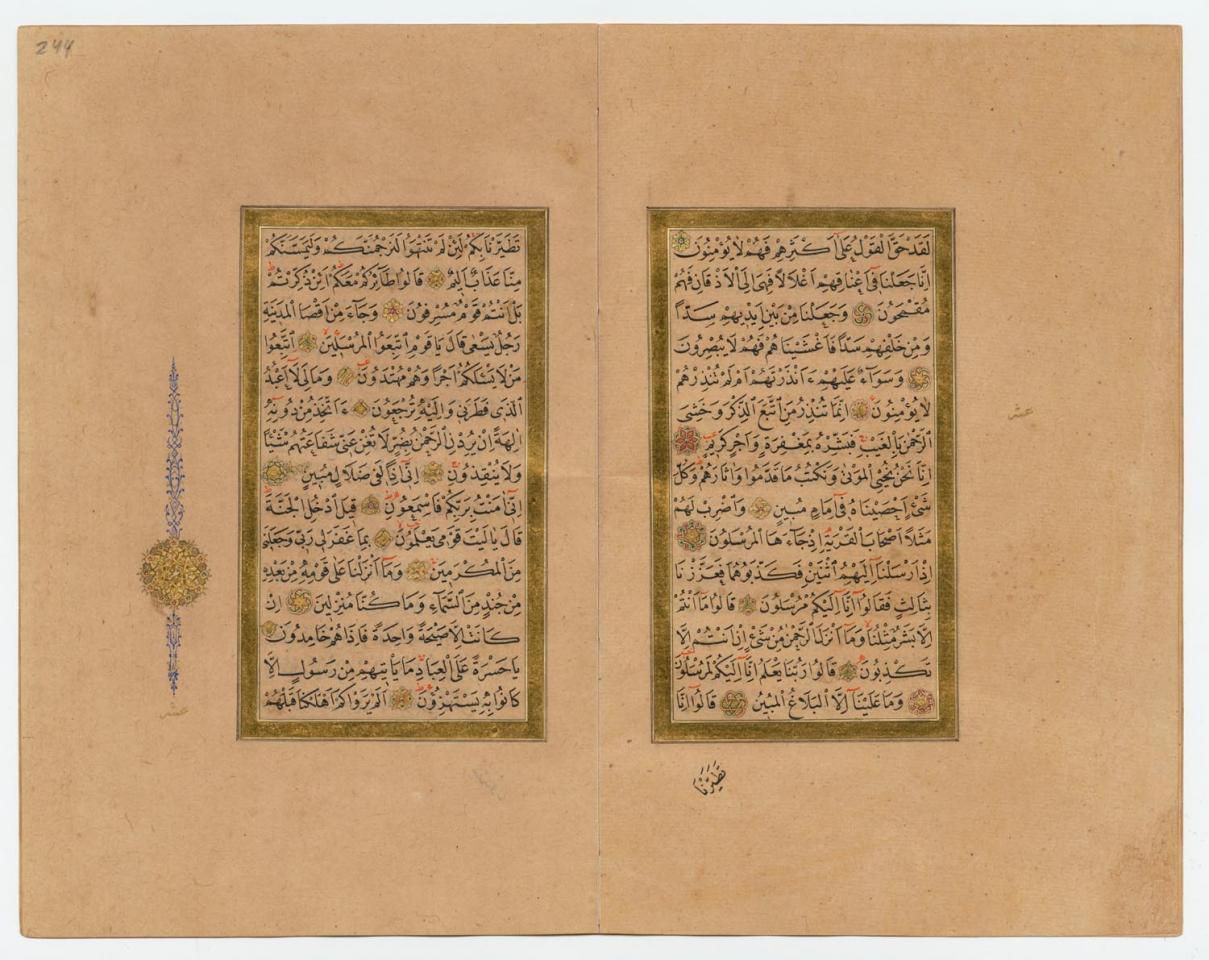 لَقَدْ حَقَّ الْقَوْلُ عَلَىٰ اَكْثَرِهِمْ فَهُمْ لَا يُؤْمِنُونَ
اِنَّا جَعَلْنَا فِي اَعْنَاقِهِمْ اَغْلَالًا فَهِيَ اِلَى الْاَذْقَانِ فَهُمْ
مُقْمَحُونَ وَجَعَلْنَا مِنْ بَيْنِ اَيْدِيهِمْ سَدًّا
وَمِنْ خَلْفِهِمْ سَدًّا فَاَغْشَيْنَاهُمْ فَهُمْ لَا يُبْصِرُونَ
وَسَوَآءٌ عَلَيْهِمْ ءَاَنْذَرْتَهُمْ اَمْ لَمْ تُنْذِرْهُمْ
لَا يُؤْمِنُونَ اِنَّمَا تُنْذِرُ مَنِ اتَّبَعَ الذِّكْرَ وَخَشِيَ
الرَّحْمٰنَ بِالْغَيْبِ فَبَشِّرْهُ بِمَغْفِرَةٍ وَاَجْرٍ كَرِيمٍ
اِنَّا نَحْنُ نُحْيِي الْمَوْتٰى وَنَكْتُبُ مَا قَدَّمُوا وَاٰثَارَهُمْ وَكُلَّ
شَيْءٍ اَحْصَيْنَاهُ فِي اِمَامٍ مُبِينٍ وَاضْرِبْ لَهُمْ
مَثَلًا اَصْحَابَ الْقَرْيَةِ اِذْ جَآءَهَا الْمُرْسَلُونَ
اِذْ اَرْسَلْنَآ اِلَيْهِمُ اثْنَيْنِ فَكَذَّبُوهُمَا فَعَزَّزْنَا
بِثَالِثٍ فَقَالُوا اِنَّا اِلَيْكُمْ مُرْسَلُونَ قَالُوا مَا اَنْتُمْ
اِلَّا بَشَرٌ مِثْلُنَا وَمَآ اَنْزَلَ الرَّحْمٰنُ مِنْ شَيْءٍ اِنْ اَنْتُمْ اِلَّا
تَكْذِبُونَ قَالُوا رَبُّنَا يَعْلَمُ اِنَّا اِلَيْكُمْ لَمُرْسَلُونَ
وَمَا عَلَيْنَآ اِلَّا الْبَلَاغُ الْمُبِينُ قَالُوا اِنَّا
تَطَيَّرْنَا
عشر
244
تَطَيَّرْنَا بِكُمْ لَئِنْ لَمْ تَنْتَهُوا لَنَرْجُمَنَّكُمْ وَلَيَمَسَّنَّكُمْ
مِنَّا عَذَابٌ اَلِيمٌ قَالُوا طَآئِرُكُمْ مَعَكُمْ اَئِنْ ذُكِّرْتُمْ
بَلْ اَنْتُمْ قَوْمٌ مُسْرِفُونَ وَجَآءَ مِنْ اَقْصَا الْمَدِينَةِ
رَجُلٌ يَسْعٰى قَالَ يَا قَوْمِ اتَّبِعُوا الْمُرْسَلِينَ اِتَّبِعُوا
مَنْ لَا يَسْـَٔلُكُمْ اَجْرًا وَهُمْ مُهْتَدُونَ وَمَا لِيَ لَآ اَعْبُدُ
الَّذِي فَطَرَنِي وَاِلَيْهِ تُرْجَعُونَ ءَاَتَّخِذُ مِنْ دُونِهِ
اٰلِهَةً اِنْ يُرِدْنِ الرَّحْمٰنُ بِضُرٍّ لَا تُغْنِ عَنِّي شَفَاعَتُهُمْ شَيْئًا
وَلَا يُنْقِذُونِ اِنِّي اِذًا لَفِي ضَلَالٍ مُبِينٍ
اِنِّي اٰمَنْتُ بِرَبِّكُمْ فَاسْمَعُونِ قِيلَ ادْخُلِ الْجَنَّةَ
قَالَ يَا لَيْتَ قَوْمِي يَعْلَمُونَ بِمَا غَفَرَ لِي رَبِّي وَجَعَلَنِي
مِنَ الْمُكْرَمِينَ وَمَآ اَنْزَلْنَا عَلٰى قَوْمِهِ مِنْ بَعْدِهِ
مِنْ جُنْدٍ مِنَ السَّمَآءِ وَمَا كُنَّا مُنْزِلِينَ اِنْ
كَانَتْ اِلَّا صَيْحَةً وَاحِدَةً فَاِذَا هُمْ خَامِدُونَ
يَا حَسْرَةً عَلَى الْعِبَادِ مَا يَاْتِيهِمْ مِنْ رَسُولٍ اِلَّا
كَانُوا بِهِ يَسْتَهْزِؤُنَ اَلَمْ يَرَوْا كَمْ اَهْلَكْنَا قَبْلَهُمْ
عشر